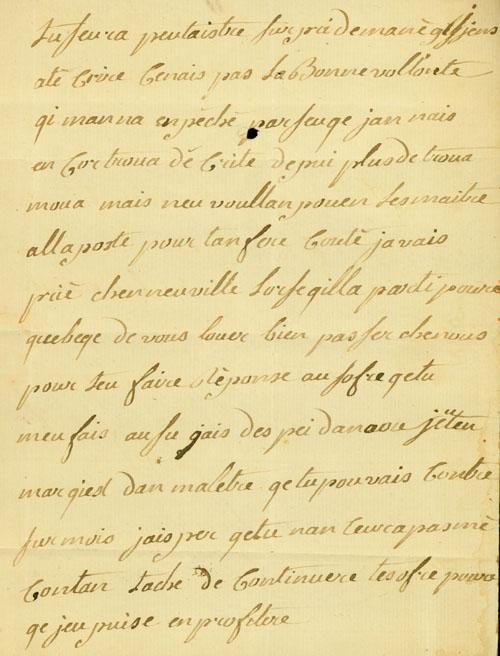 tu seura peutaistre surprï de ma nè gligens
atè Crire Cenais pas La Bonne vollonte
qi manna enpèche par seuqe jan nais
en Cor troua dè Crite depui plus de troua
moua mais neu voullan pouen Les maitre
alla poste pour tan fere Coutè javais
priè chenneuville Lorse qilla parti poure
quebeqe de vous louer bien passer chenous
pour teu faire Rèponse au sofre qetu
meu fais ausu jais des pei dan aou jèteu
marqiest dan maletre qetu pouvais Contre
sur mois jaisper qetu nan Ceura pas mè
Contan tache de Continuere tesofre poure
qe jeu puise en profitere